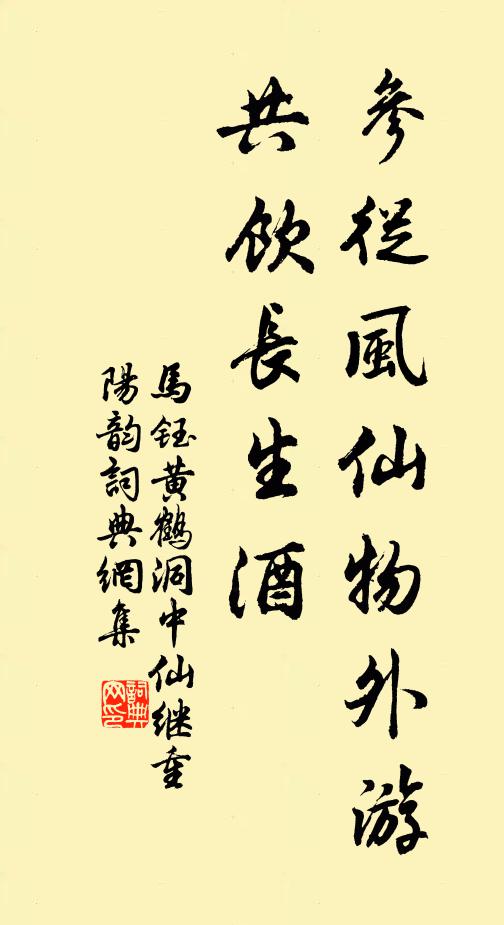 參從風仙物外游
共飲長生酒
馬鈺黃鶴洞中仙继重
陽韵詞典網集
詞典
网印